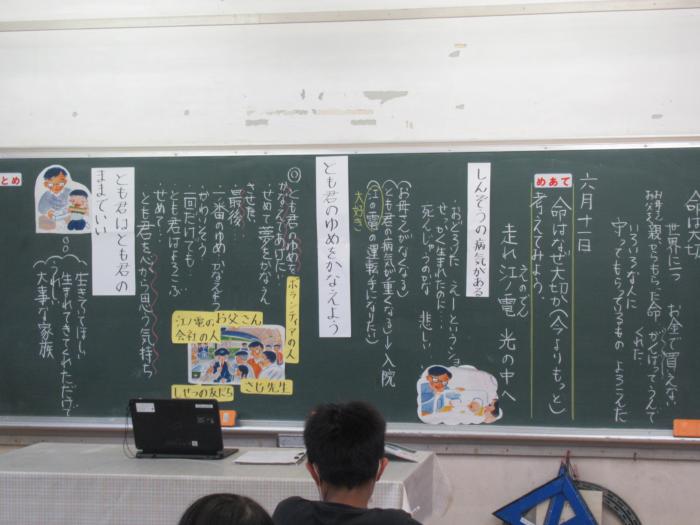 命は大切
世界に一つ お金で買えない
お母さん、親からもらった命 がくばってうんで
くれた
いろいろな人に
守ってもらっているもの よろこんだ
六月十一日
めあて
命はなぜ大切か(今よりもっと)
考えてみよう。
えのでん
走れ江ノ電 光の中へ
しんぞうの病気がある
・おどろいた えーというショ
・せっかく生まれたのに…
死んじゃうのかな 悲しい…
お母さんがなくなる
とも君の病気が重くなる→入院
江の電の運転手になりたい
大好き
とも君のゆめをかなえよう
◎とも君のゆめを
かなえてあげたい
せめて夢をかなえ
させたい
・最後…
一番のゆめかなえよう
・かわいそう
一回だけでも…
・とも君はよろこぶ
・せめて…
とも君を心から思う気持ち
ボランティアの人
お父さん
江ノ電の会社の人
しせつの友だち
さじ先生
とも君はとも君の
ままでいい
まとめ
生きていてほしい
生まれてきてくれただけで
うれしい
大事な家族